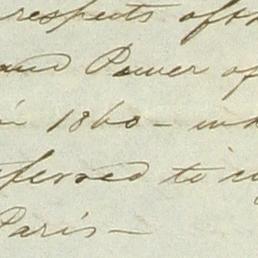 respects of th
and Power of
in 1860 - wh
eferred to in
Paris -